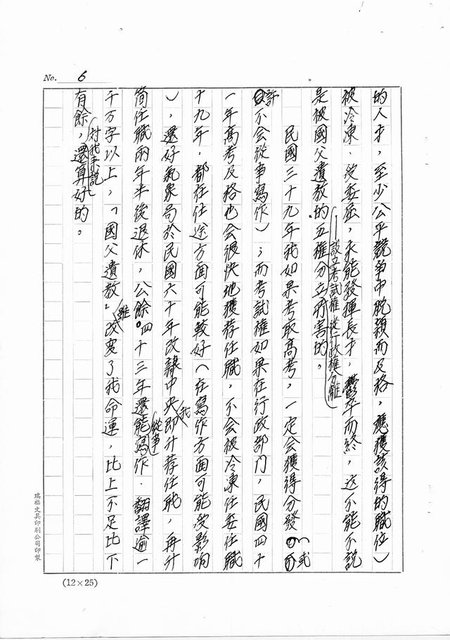 No. 6
的人才，至少公平競爭中脫穎而及格，應獲該得的職位）
被冷凍、受委屈，不能發揮長才，鬱卒而終，這不能不說
是被國父遺教的五權分立所害的。
設立考試權從行政權分離
民國三十九年我如果考取高考，一定會獲得分發（或
許不會從事寫作）；而考試權如果在行政部門，民國四十
一年高考及格也會很快地獲荐任職，不會被冷凍任委任職
十九年，都在仕途方面可能較好（在寫作方面可能受影响
），還好氣象局於民國六十年改隸中央，我即升荐任職，再升
簡任職兩年半後退休，公餘四十三年還能從事寫作、翻譯逾一
千万字以上，「國父遺教」雖改變了我命運，比上不足比下
有餘，對我來說還算好的。
瑞祥文具印刷公司印製
(12×25)